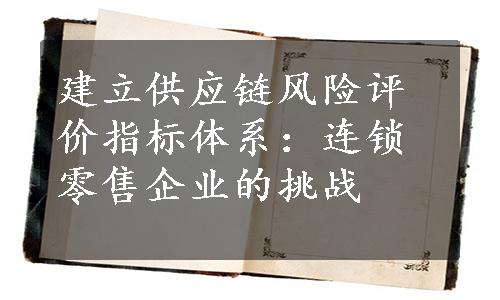 建立供应链风险评
价指标体系：连锁
零售企业的挑战